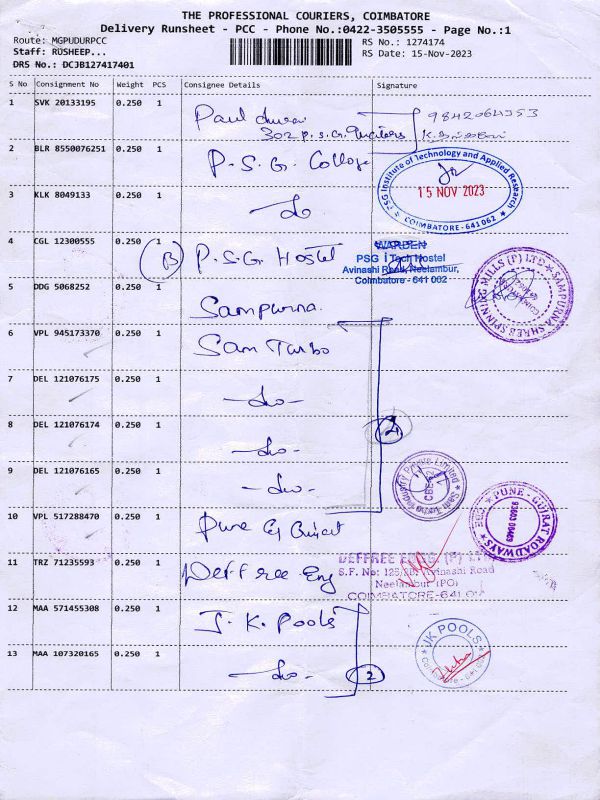 THE PROFESSIONAL COURIERS, COIMBATORE
Delivery Runsheet - PCC - Phone No.:0422-3505555 - Page No.:1
Route: MGPUDURPCC
Staff: RUSHEEP...
DRS No.: DCJB127417401
RS No.: 1274174
RS Date: 15-Nov-2023
S No Consignment No Weight PCS Consignee Details Signature
1 SVK 20133195 0.250 1 Paul 9842064353
302 P.S.G.
2 BLR 8550076251 0.250 1 P.S.G. College
PSG Institute of Technology and Applied Research
15 NOV 2023
COIMBATORE-641 062
3 KLK 8049133 0.250 1 -do-
4 CGL 12300555 0.250 1 (B) P.S.G. Hostel
WARDEN
PSG iTech Hostel
Avinashi Road, Neelambur,
Coimbatore - 641 062
5 DDG 5068252 0.250 1 Sampurna
SAMPURNA SHREE SPINNING MILLS (P) LTD
6 VPL 945173370 0.250 1 Sam Turbo
7 DEL 121076175 0.250 1 -do-
8 DEL 121076174 0.250 1 -do- 4
9 DEL 121076165 0.250 1 -do-
Sam Turbo Industry Private Limited
10 VPL 517288470 0.250 1 Pune Gujrat
PUNE - GUJRAT ROADWAYS CBE
11 TRZ 71235593 0.250 1 Deffree Eng
DEFFREE ENGG. (P)
S.F. No: Avinashi Road
Neelambur (PO)
COIMBATORE-641
12 MAA 571455308 0.250 1 J.K. Pools
13 MAA 107320165 0.250 1 -do- 2
JK POOLS